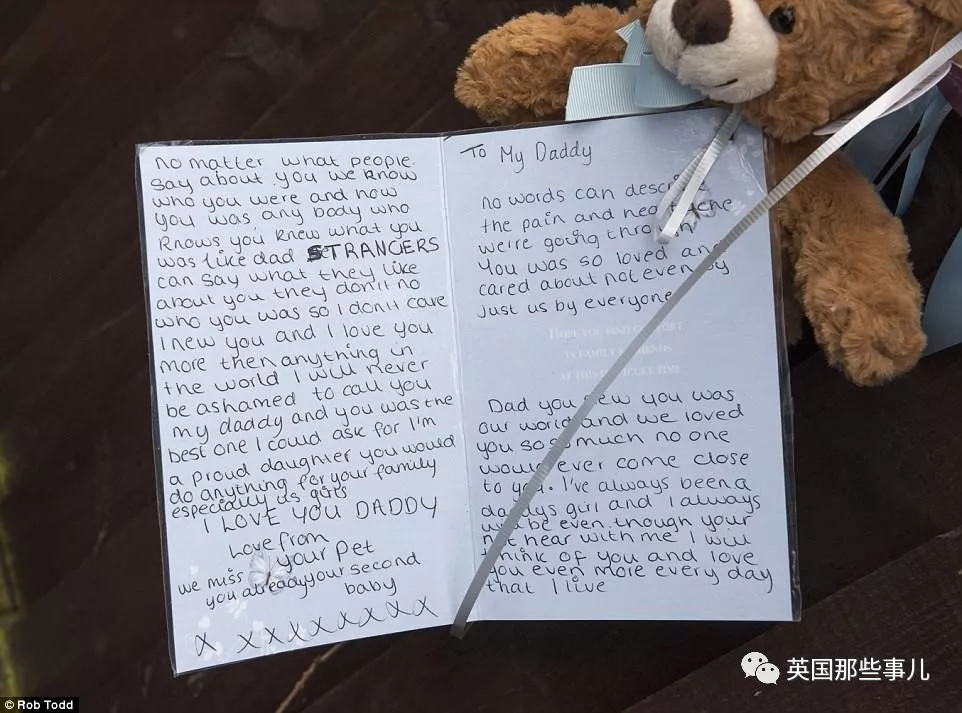 no matter what people.
say about you we know
who you were and now
you was any body who
knows you knew what you
was like dad STRANGERS
can say what they like
about you they don't no
who you was so I don't care
I new you and I love you
more then anything in
the world I will never
be ashamed to call you
my daddy and you was the
best one I could ask for I'm
a proud daughter you would
do anything for your family
especially us girts
I LOVE YOU DADDY
Love from
your Pet
we miss
you already your second
baby
x xxxxxxxx
To My Daddy
no words can describe
the pain and heartache
we're going through
You was so loved and
cared about not even by
just us by everyone
HOPE YOU FIND COMFORT
IN FAMILY & FRIENDS
AT THIS DIFFICULT TIME
Dad you new you was
our world and we loved
you so so much no one
would ever come close
to you. I've always been a
daddys girl and I always
will be even though your
not hear with me I will
think of you and love
you even more every day
that I live
© Rob Todd
英国那些事儿